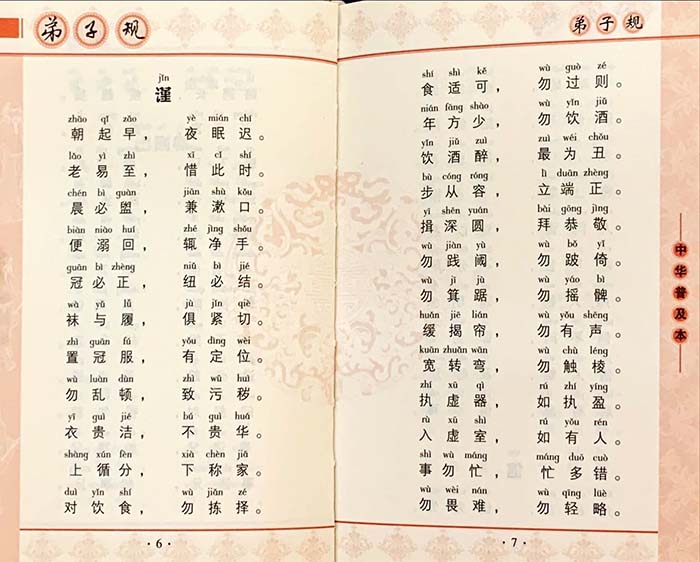 弟子规
jǐn
谨
zhāo qǐ zǎo yè mián chí
朝起早，夜眠迟。
lǎo yì zhì xī cǐ shí
老易至，惜此时。
chén bì guàn jiān shù kǒu
晨必盥，兼漱口。
biàn niào huí zhé jìng shǒu
便溺回，辄净手。
guān bì zhèng niǔ bì jié
冠必正，纽必结。
wà yǔ lǚ jù jǐn qiè
袜与履，俱紧切。
zhì guān fú yǒu dìng wèi
置冠服，有定位。
wù luàn dùn zhì wū huì
勿乱顿，致污秽。
yī guì jié bú guì huá
衣贵洁，不贵华。
shàng xún fèn xià chèn jiā
上循分，下称家。
duì yǐn shí wù jiǎn zé
对饮食，勿拣择。
·6·
弟子规
shí shì kě wù guò zé
食适可，勿过则。
nián fāng shào wù yǐn jiǔ
年方少，勿饮酒。
yǐn jiǔ zuì zuì wéi chǒu
饮酒醉，最为丑。
bù cóng róng lì duān zhèng
步从容，立端正。
yī shēn yuán bài gōng jìng
揖深圆，拜恭敬。
wù jiàn yù wù bǒ yǐ
勿践阈，勿跛倚。
wù jī jù wù yáo bì
勿箕踞，勿摇髀。
huǎn jiē lián wù yǒu shēng
缓揭帘，勿有声。
kuān zhuǎn wān wù chù léng
宽转弯，勿触棱。
zhí xū qì rú zhí yíng
执虚器，如执盈。
rù xū shì rú yǒu rén
入虚室，如有人。
shì wù máng máng duō cuò
事勿忙，忙多错。
wù wèi nán wù qīng lüè
勿畏难，勿轻略。
·7·
中华普及本